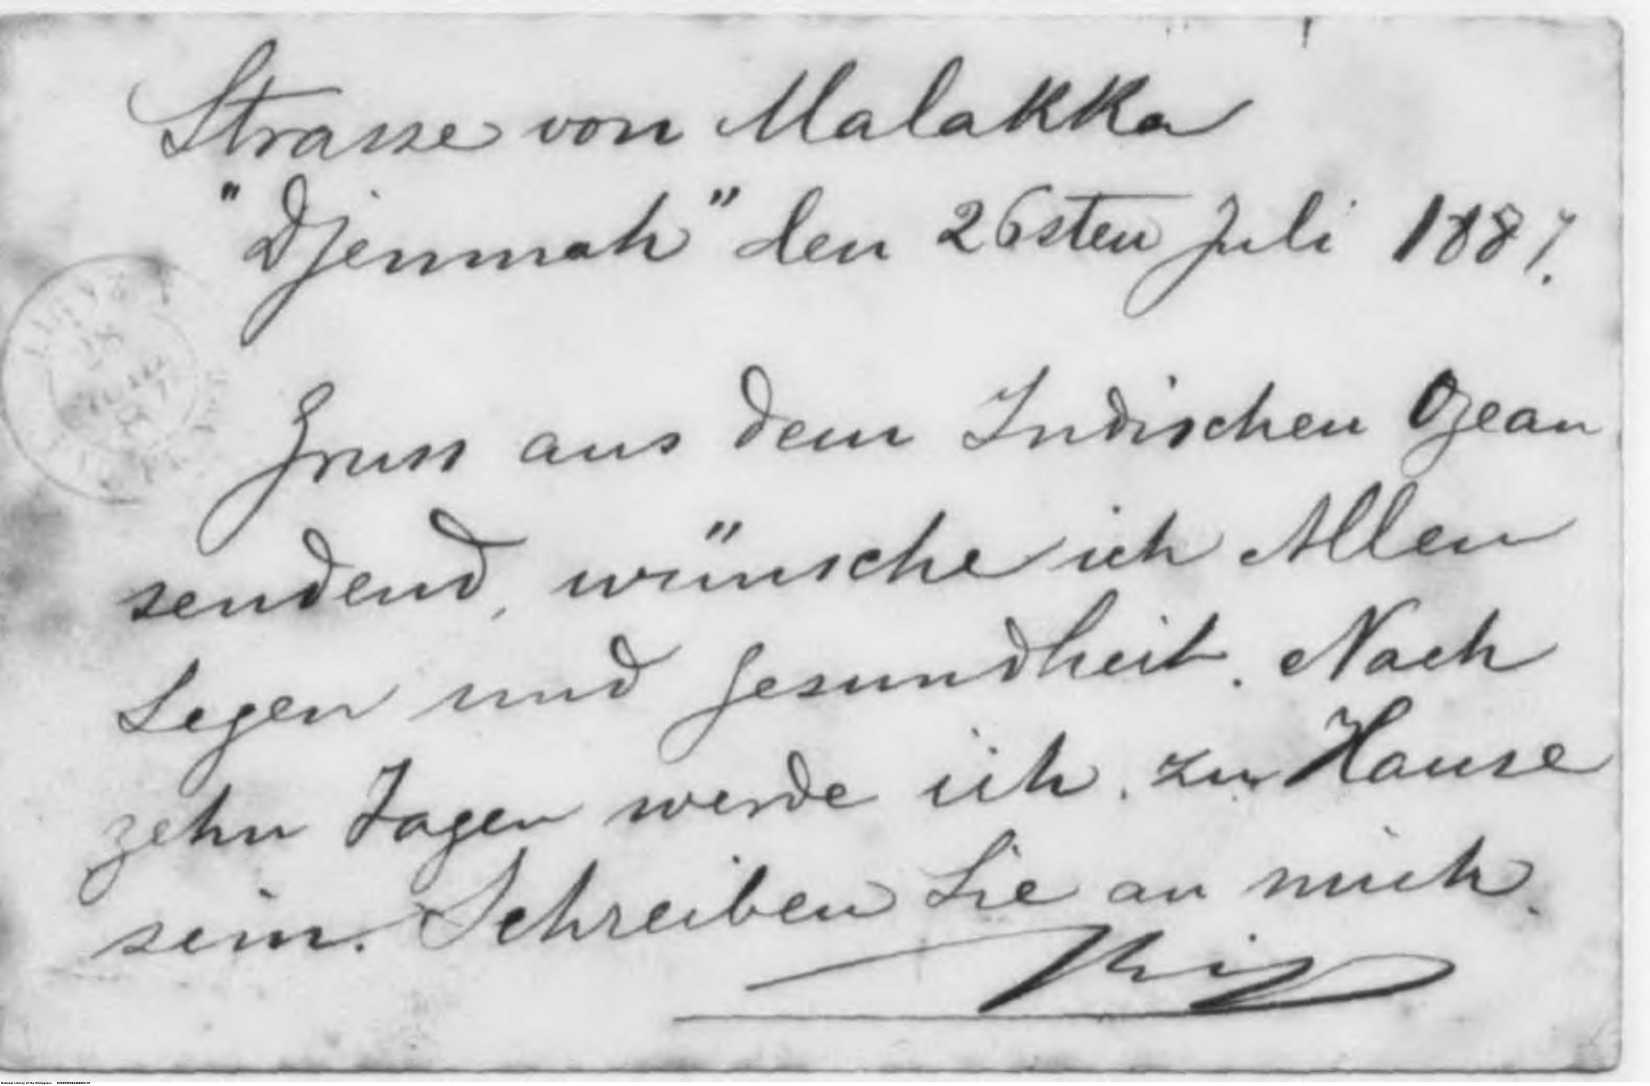 Strasse von Malakka
"Djemnah" den 26sten Juli 1887.
Gruss aus dem Indischen Ozean
sendend, wünsche ich Allen
Segen und Gesundheit. Nach
zehn Tagen werde ich zu Hause
sein. Schreiben Sie an mich.
Rizal